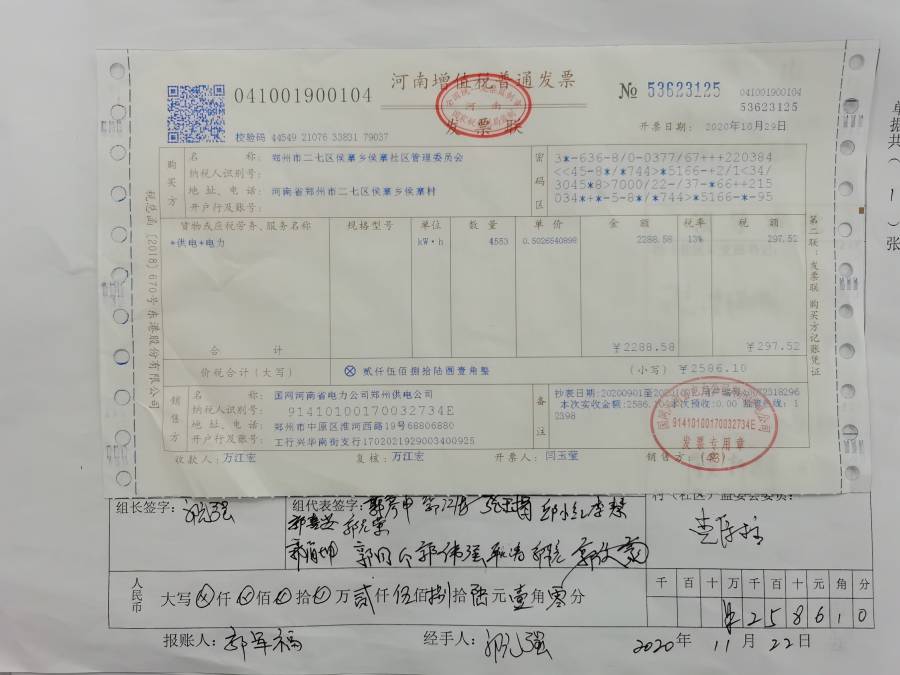 河南增值税普通发票
041001900104
№ 53623125
041001900104
53623125
发票联
校验码 44549 21076 33831 79037
开票日期: 2020年10月29日
购买方
名 称: 郑州市二七区侯寨乡侯寨社区管理委员会
纳税人识别号:
地 址、电 话: 河南省郑州市二七区侯寨乡侯寨村
开户行及账号:
密码区
3*-636-8/0-0377/67+++220384
<<45-8*/*744>*5166-+2/1<34/
3045*8>7000/22-/37-*66++215
034*+*-5-8*/*744>*5166-*-95
货物或应税劳务、服务名称 规格型号 单位 数 量 单 价 金 额 税率 税 额
*供电*电力 kW·h 4553 0.5026540898 2288.58 13% 297.52
合 计 ￥2288.58 ￥297.52
价税合计(大写) ⊗ 贰仟伍佰捌拾陆圆壹角整 (小写) ￥2586.10
销售方
名 称: 国网河南省电力公司郑州供电公司
纳税人识别号: 91410100170032734E
地 址、电 话: 郑州市中原区淮河西路19号68806880
开户行及账号: 工行兴华南街支行1702021929003400925
备注
91410100170032734E
发票专用章
收款人: 万江宏 复核: 万江宏 开票人: 闫玉莹 销售方:(章)
税总函〔2018〕670号东港股份有限公司
第二联:发票联 购买方记账凭证
单据共(1)张
组长签字:
组代表签字:
村(社区)监委会委员:
人民币
大写⊗仟⊗佰⊗拾⊗万贰仟伍佰捌拾陆元壹角零分
千 百 十 万 千 百 十 元 角 分
￥ 2 5 8 6 1 0
报账人: 郭军福 经手人: 2020年 11月 22日